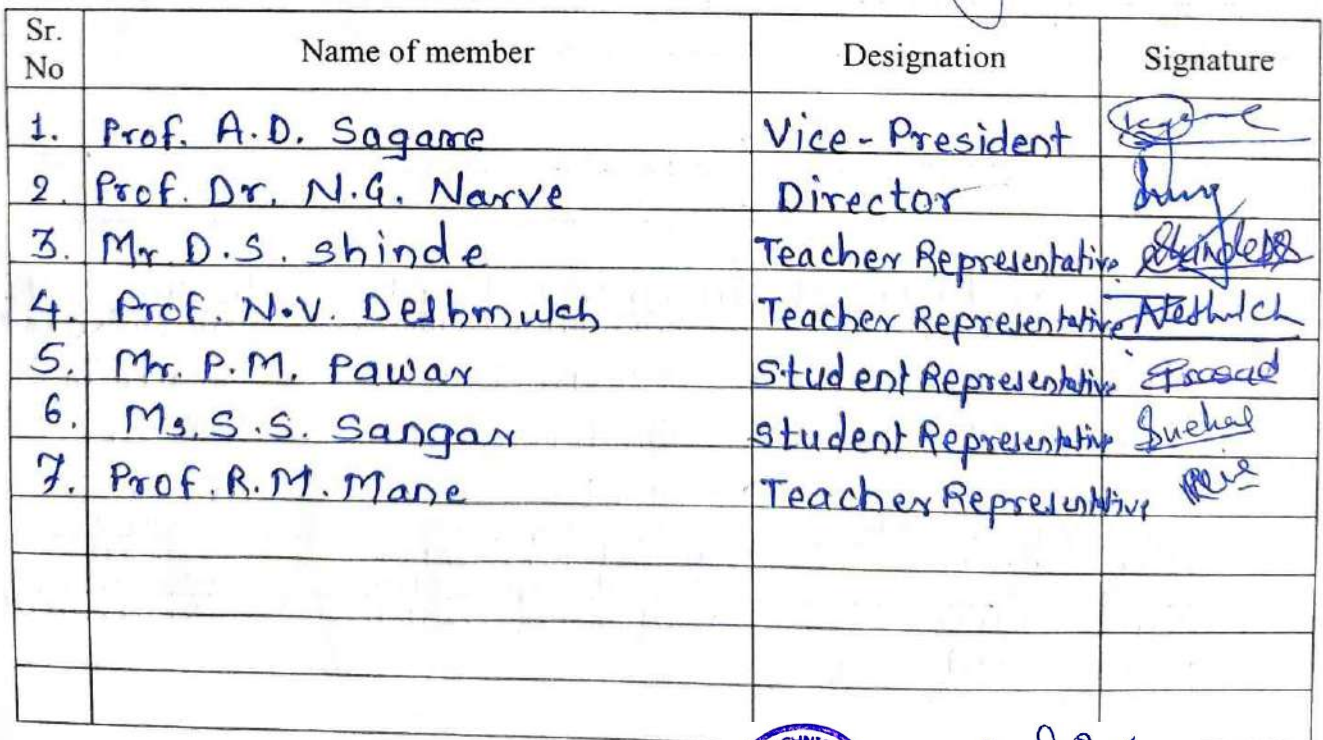 Sr. No Name of member Designation Signature
1. Prof. A.D. Sagare Vice-President
2. Prof. Dr. N.G. Narve Director
3. Mr D.S. Shinde Teacher Representative
4. Prof. N.V. Deshmukh Teacher Representative
5. Mr. P.M. Pawar Student Representative Prasad
6. Ms. S.S. Sangar Student Representative
7. Prof. R.M. Mane Teacher Representative